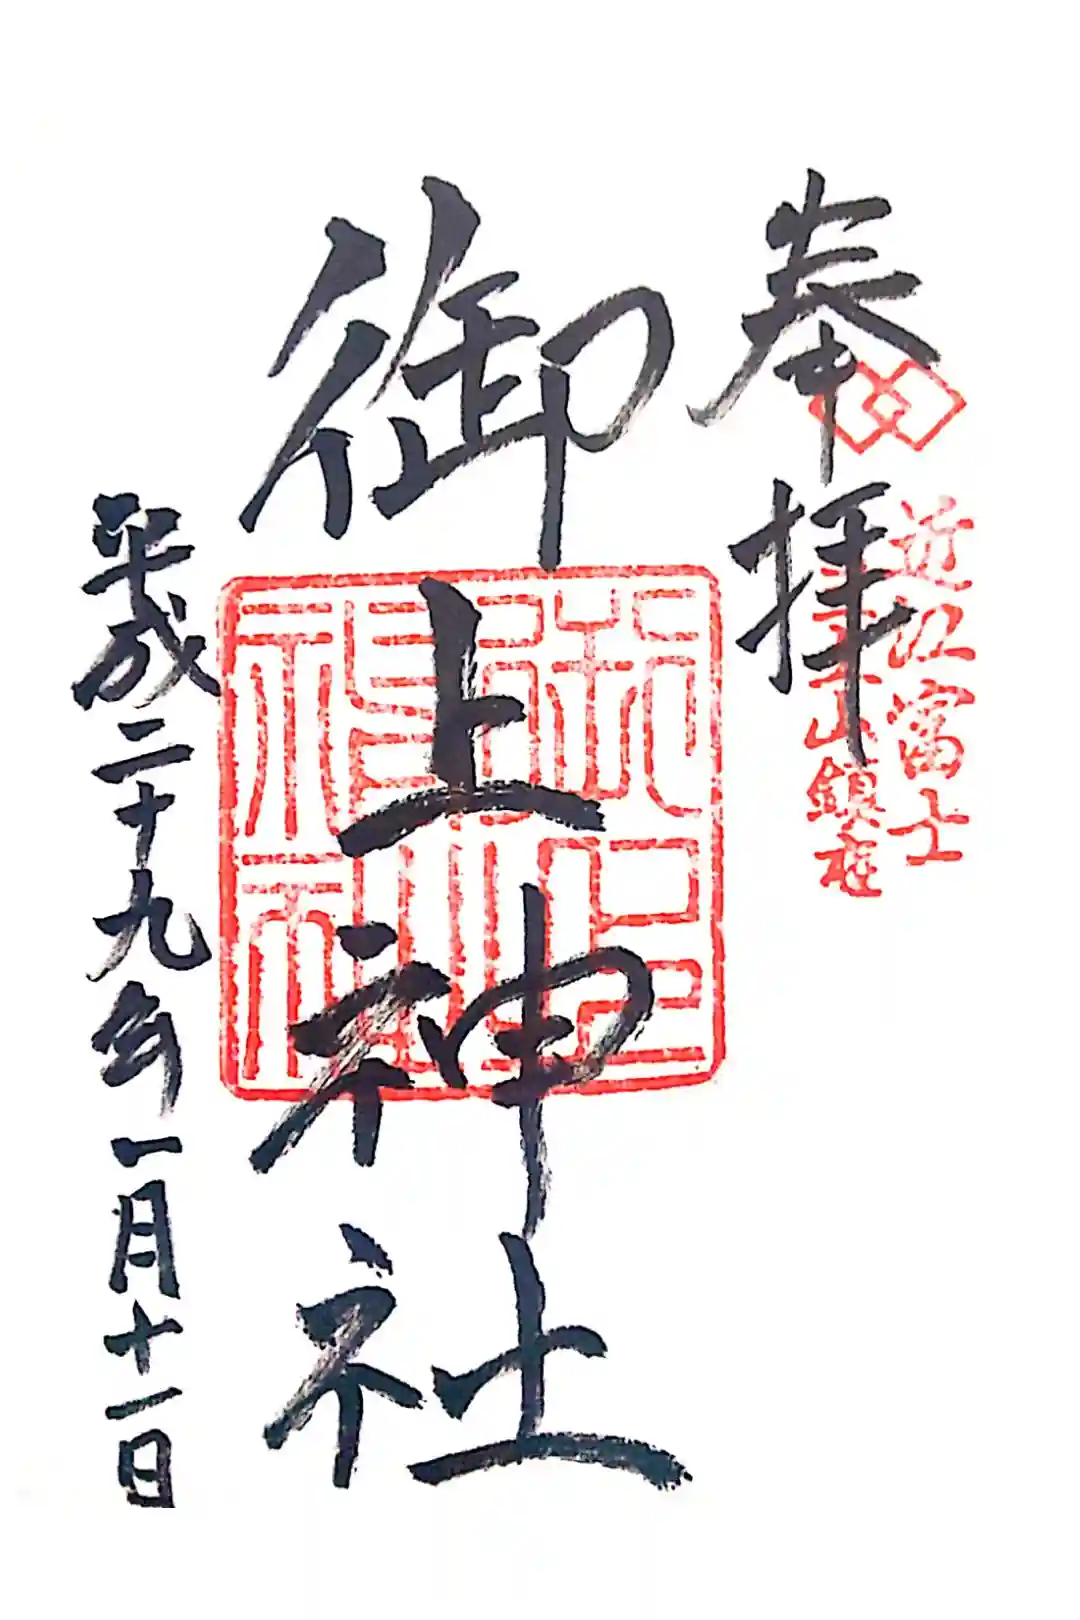 奉拝
近江富士
山鎮座
御上神社
平成二十九年一月十一日